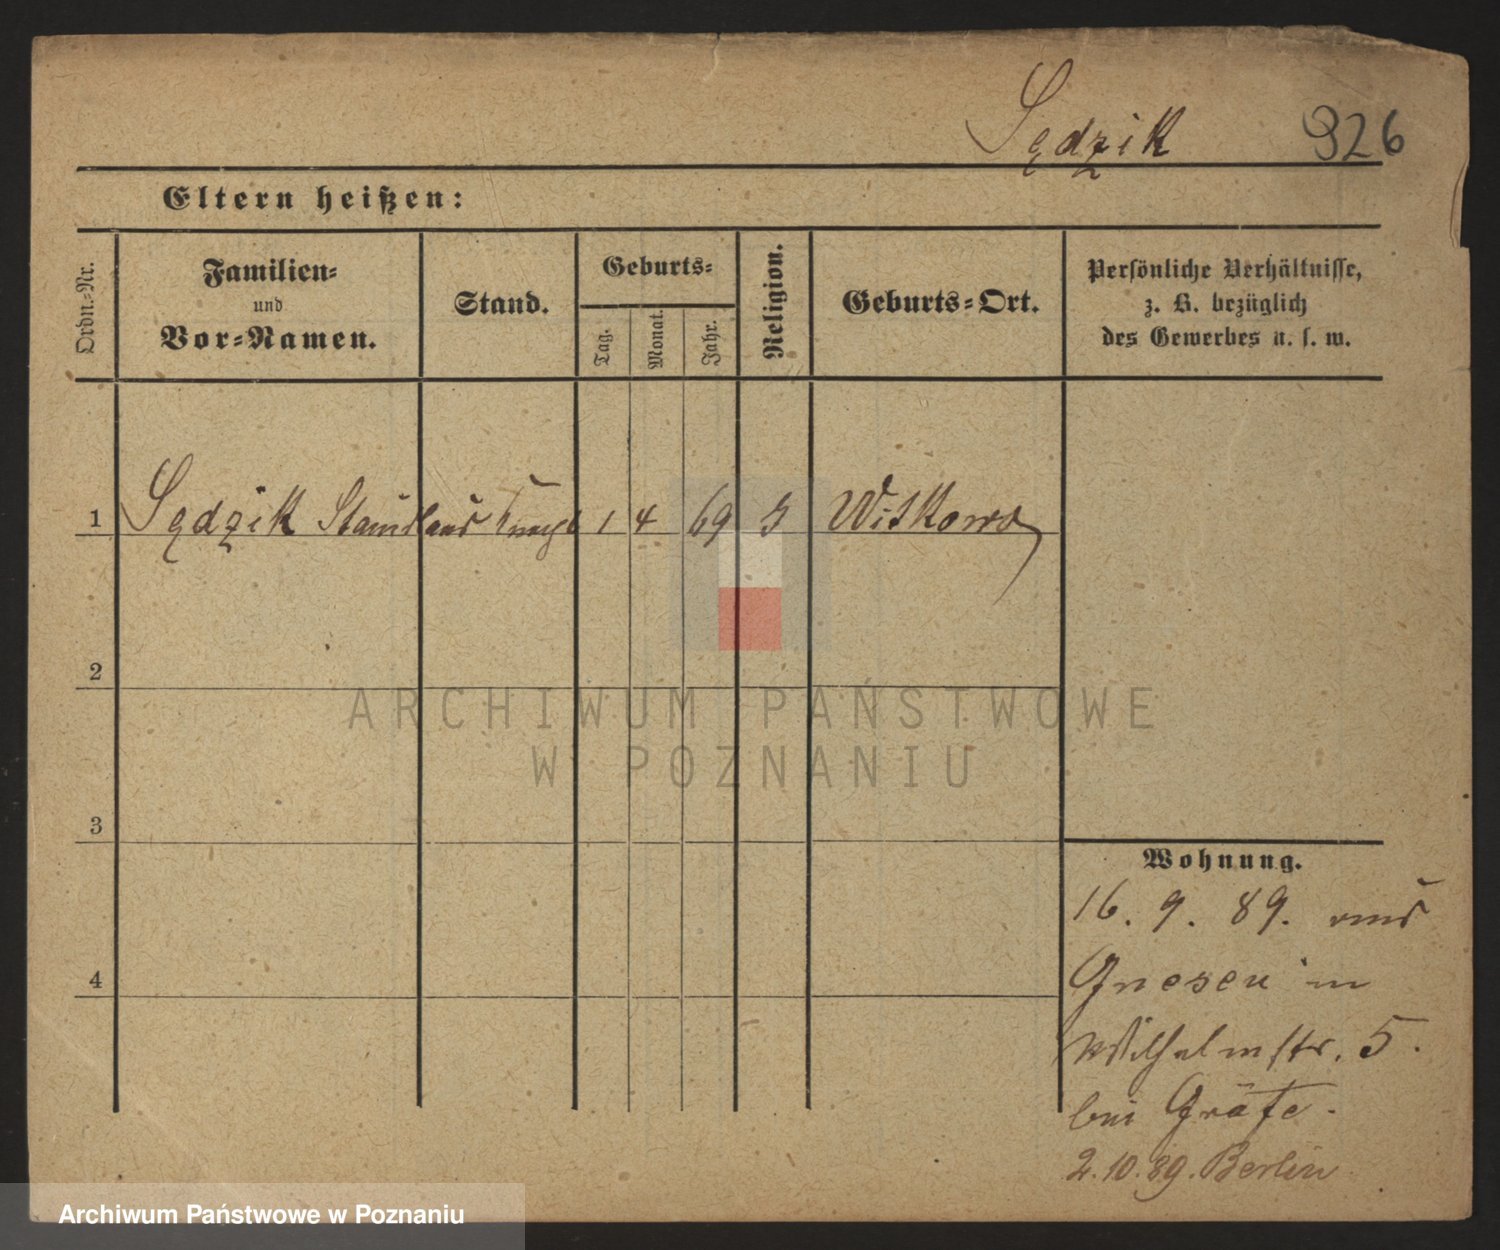 Sędzik 926
Eltern heißen:
Ordn.=Nr.
Familien=
und
Vor=Namen.
Stand.
Geburts=
Tag.
Monat.
Jahr.
Religion.
Geburts=Ort.
Persönliche Verhältnisse,
z. B. bezüglich
des Gewerbes u. s. w.
1 Sędzik Stanislaus Knecht 1 4 69 Witkowo
2
3
4
Wohnung.
16. 9. 89. aus
Gnesen in
Wilhelmstr. 5.
bei Gräfe.
2.10.89. Berlin
ARCHIWUM PAŃSTWOWE
W POZNANIU
Archiwum Państwowe w Poznaniu